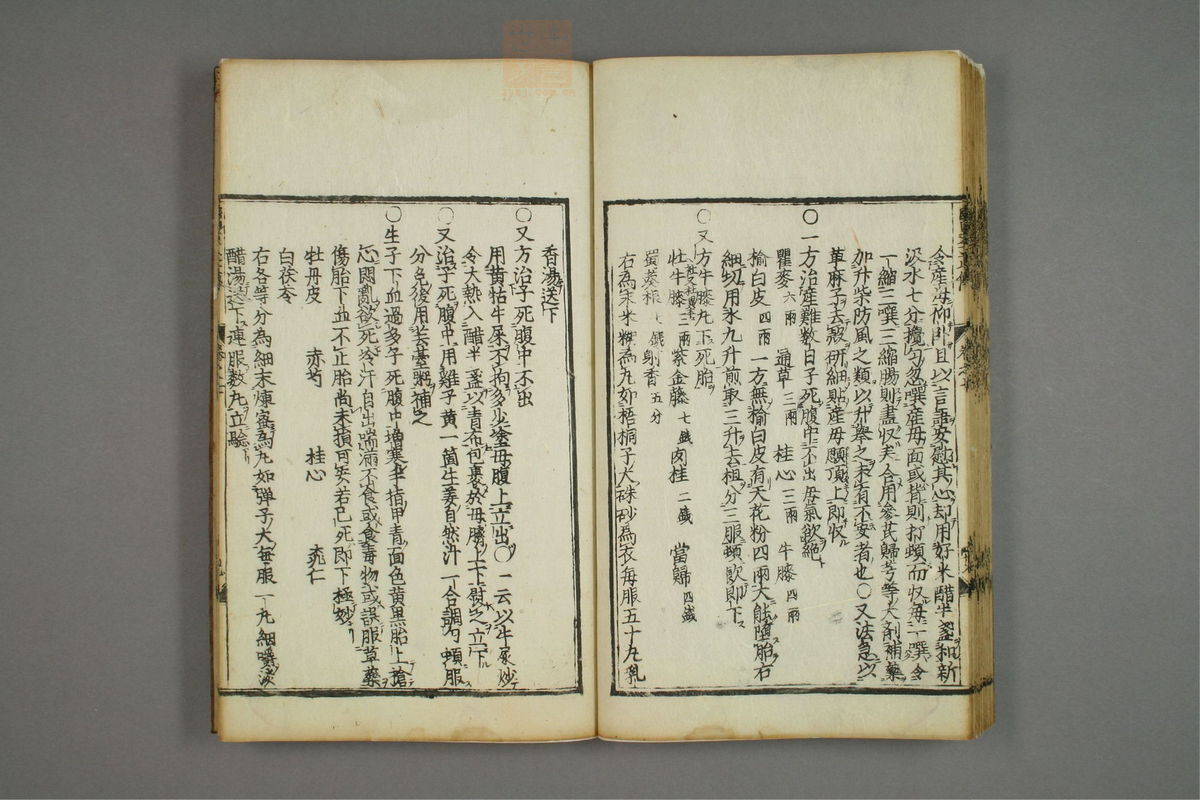 令産母仰臥且以言語安慰其心却用好米醋半盞和新
汲水七分攪勻忽噀産母面或背則打頓而収毎一噀令
一縮三噀三縮腸則盡収矣合用參芪歸芎等大剤補藥
加升柴防風之類以升舉之未有不安者也〇又法急以
萆麻子去殻研細貼産母頭頂上即収
〇一方治産難數日子死腹中不出母氣欲絶
瞿麥六兩 通草三兩 桂心三兩 牛膝四兩
榆白皮四兩 一方無榆白皮有天花粉四兩大能墮胎右
細切用水九升煎取三升去柤分三服頓飲即下
〇又方牛膝丸下死胎
牡牛膝三兩紫金藤七錢肉桂二錢 當歸四錢
蜀葵根七錢射香五分
右為末米糊為丸如梧桐子大硃砂為衣毎服五十丸乳
香湯送下
〇又方治子死腹中不出
用黄牯牛屎不拘多少塗母腹上立出〇一云以牛屎炒
令大熱入醋半盞以青布包裹於母臍上下熨之立下
〇又治子死腹中用雞子黄一箇生姜自然汁一合調勻頓服
分免後用芸薹粥補之
〇生子下血過多子死腹中増寒手指甲青面色黄黒胎上搶
心悶亂欲死冷汗自出喘滿不食或食毒物或誤服草藥
傷胎下血不止胎尚未損可安若已死即下極妙
牡丹皮 赤芍 桂心 桃仁
白茯苓
右各等分為細末煉蜜為丸如弾子大毎服一丸細嚼淡
醋湯送下連服數丸立驗